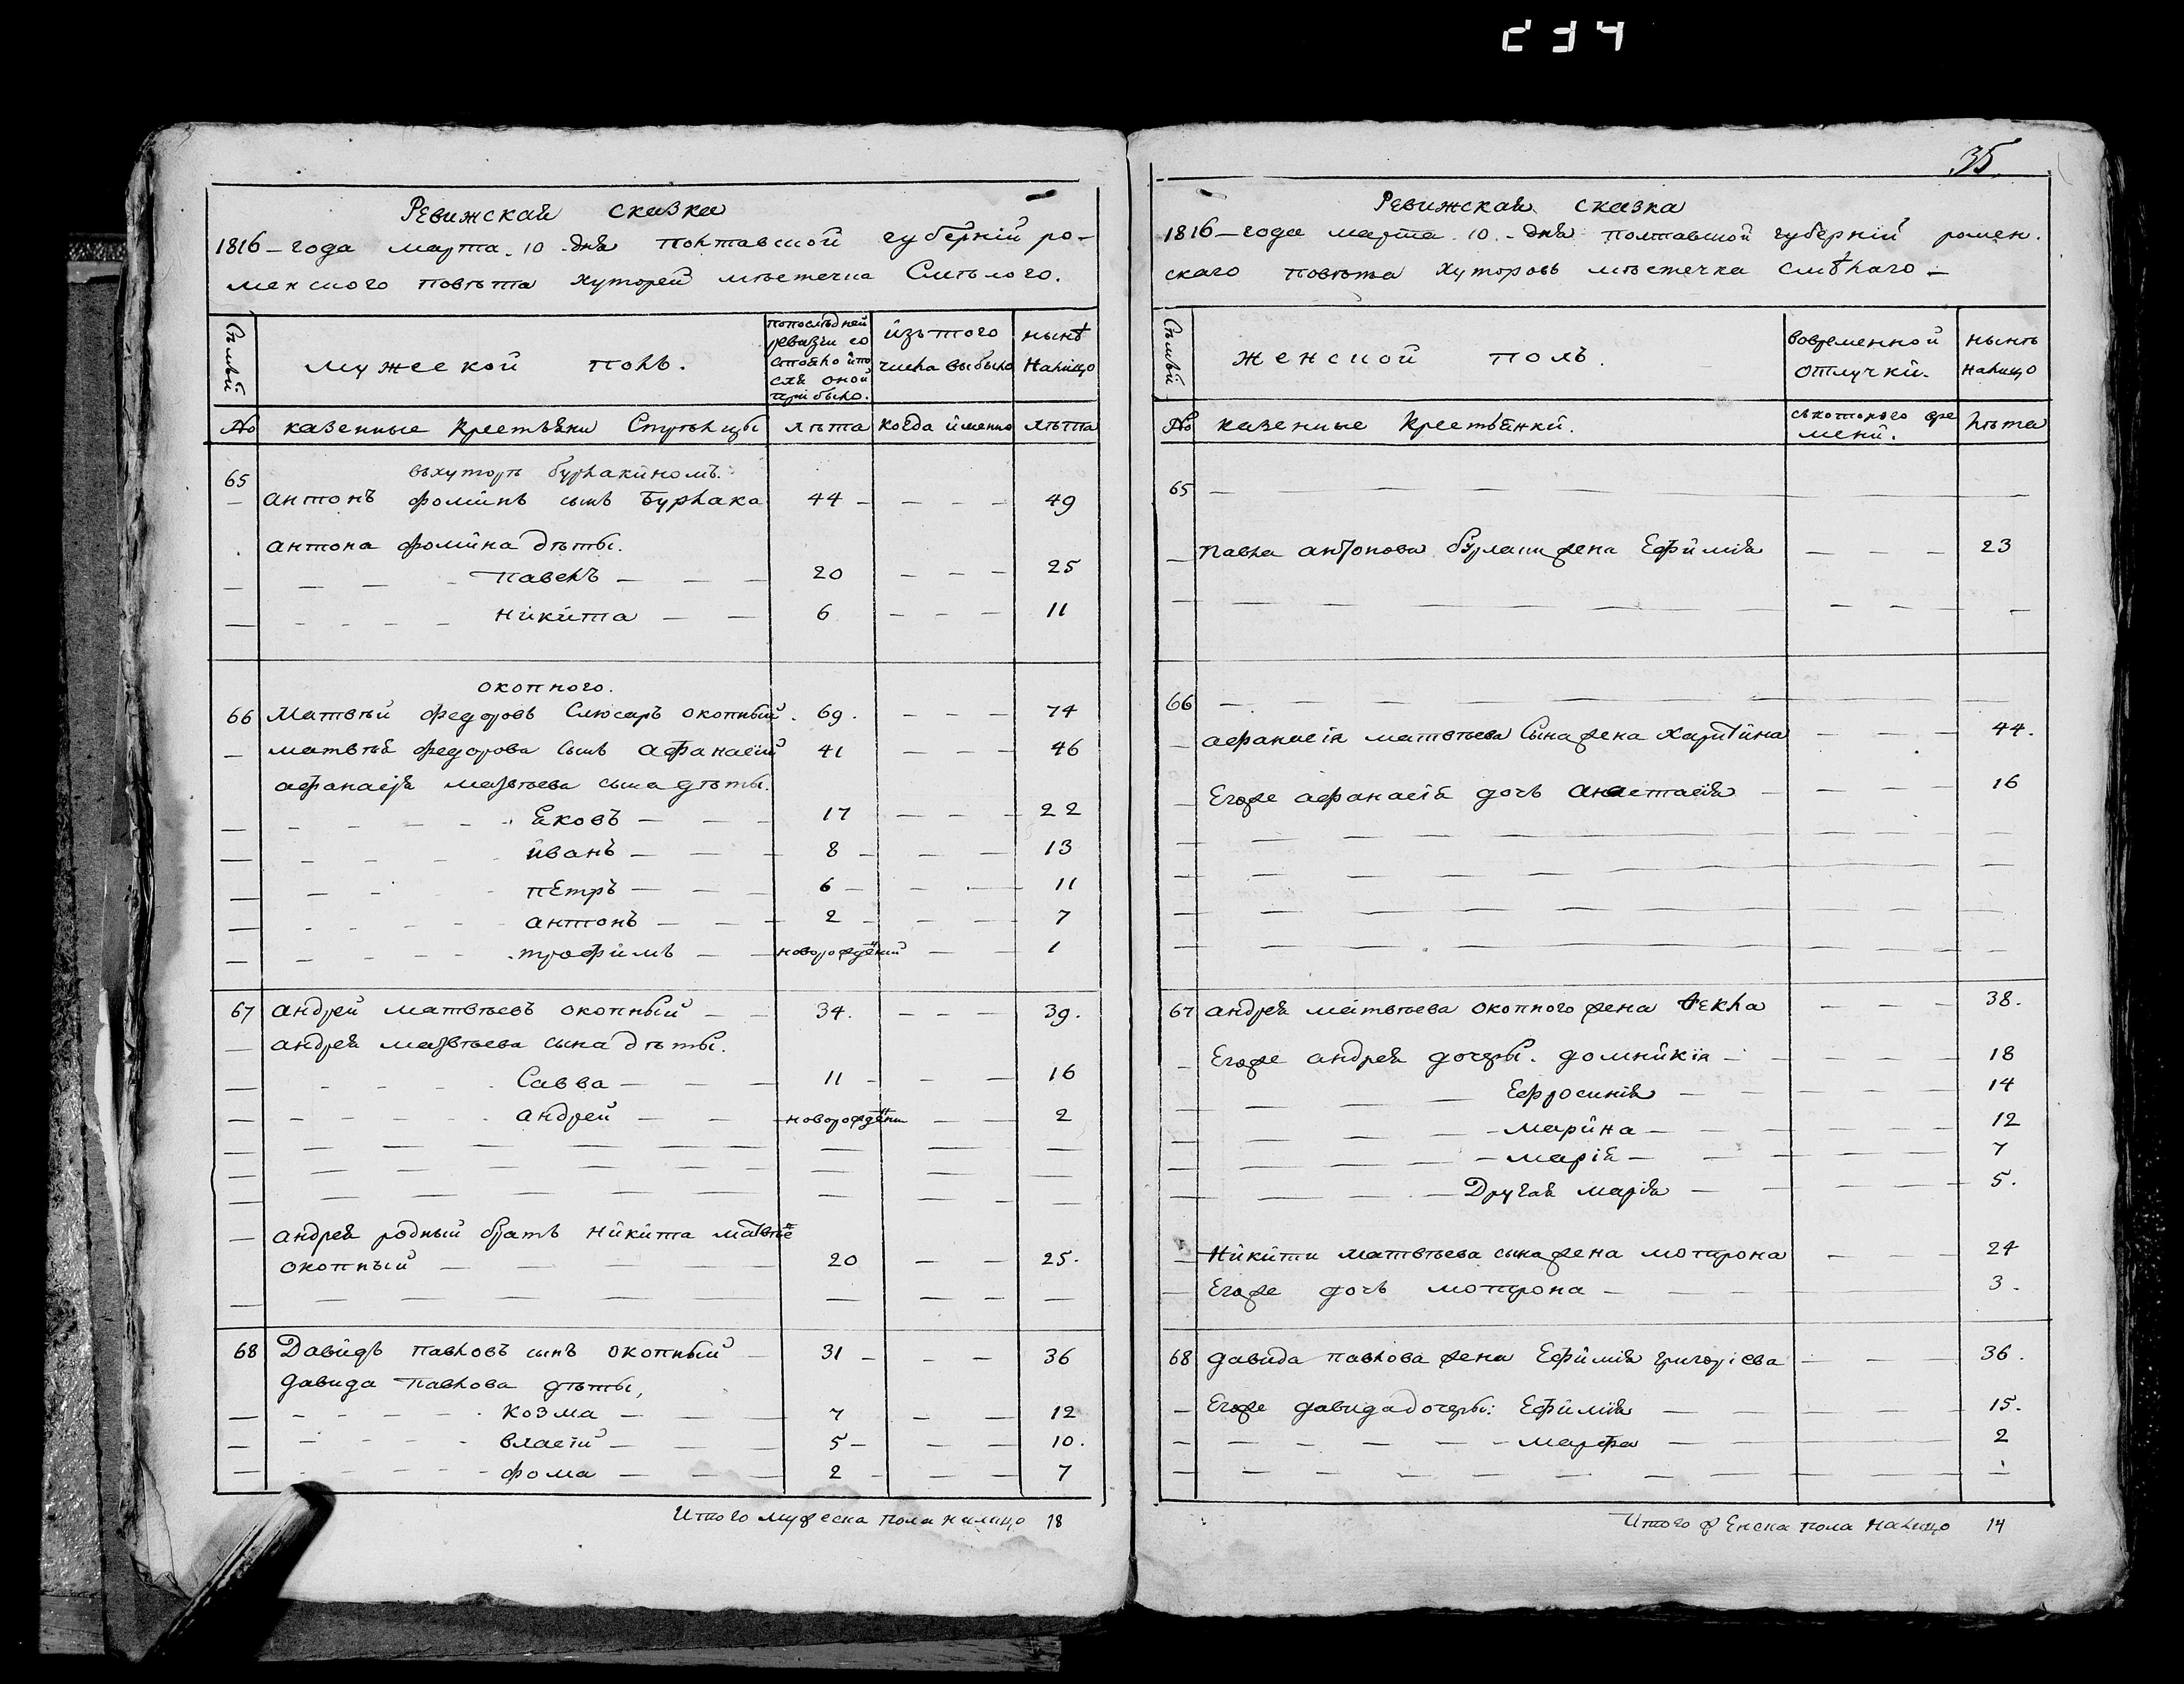 234
Ревижская сказка
1816 – года марта . 10 - дня полтавской губерній ро-
менского повѣта хуторей мѣстечка Смѣлого.
Сѣмьи
мужеской полъ.
попослѣдней ревизіи состояло ипослѣ оной прибыло.
изътого числа выбыло
нынѣ налицо
№ казенные крестьяни
лѣта
когда именно
лѣта
вхуторѣ бурлакиномъ.
65
– антонъ фоминъ сынъ Бурлака 44 – – – – 49
антона фомина дѣты.
– – – – павелъ – – – 20 – – – 25
– – – – – никита – – 6 – – – 11
окопного.
66 Матвѣй федоровъ Слюсарь окопный . 69 . – – – 74
– матвѣя федорова сынъ афанасій 41 – – – 46
афанасія матвѣева сына дѣты.
– – – – – яковъ – – – 17 – – – 22
– – – – – иванъ – – – 8 – – – 13
– – – – – пЕтръ – – – 6 – – – 11
– – – – – антонъ – – – 2 – – – 7
– – – – – трофимъ – – новорожденій – – 1
67 андрей матвѣевъ окопный – – 34. – – – 39.
– андрея матвѣева сына дѣты.
– – – – – Савва – – – 11 – – – 16
– – – – – андрей – – новорожденн – – 2
– андрея родный братъ никита матвѣе
окопный – – – – 20 – – 25.
68 Давидъ павловъ сынъ окопный – 31 – – – 36
давида павлова дѣты,
– – – – – козма – – – 7 – – 12
– – – – – власій – – – 5 – – – 10.
– – – – – фома – – – 2 – – – 7
Итого мужеска пола налицо 18
35.
Ревижская сказка
1816 – года марта . 10 . – дня полтавской губерній ромен.
скаго повѣта хуторовъ мѣстечка смѣлаго –
Сѣмьи
женской полъ.
вовременной отлучки.
нынѣ налицо
№ казенные крестьянки.
съкотоюго вре мени.
лѣта
65 – – – – – –
– павла антонова бурлаки жена Ефимія – – – 23
66 – – – – – –
– афанасія матвѣева сына жена харитина – – – 44.
– Егоже афанасія дочь анастасія – – – – 16
67 андрея матвѣева окопного жена ѳекла – – – 38.
– Егоже андрея дочеры. домникія – – – – 18
– – – – Ефросинія – – – – 14
– – – – марина – – – – 12
– – – – марія – – – – 7
– – – – Другая марія – – – – 5.
– Никити матвѣева сына жена мотрона – – 24
– Егоже дочь мотрона – – – 3.
68 давида павлова жена Ефимія григоріева – – – 36.
– Егоже давида дочеры: Ефимія – – – – 15.
– – – – – – марфа – – – – 2
Итого жЕнска пола налицо 14